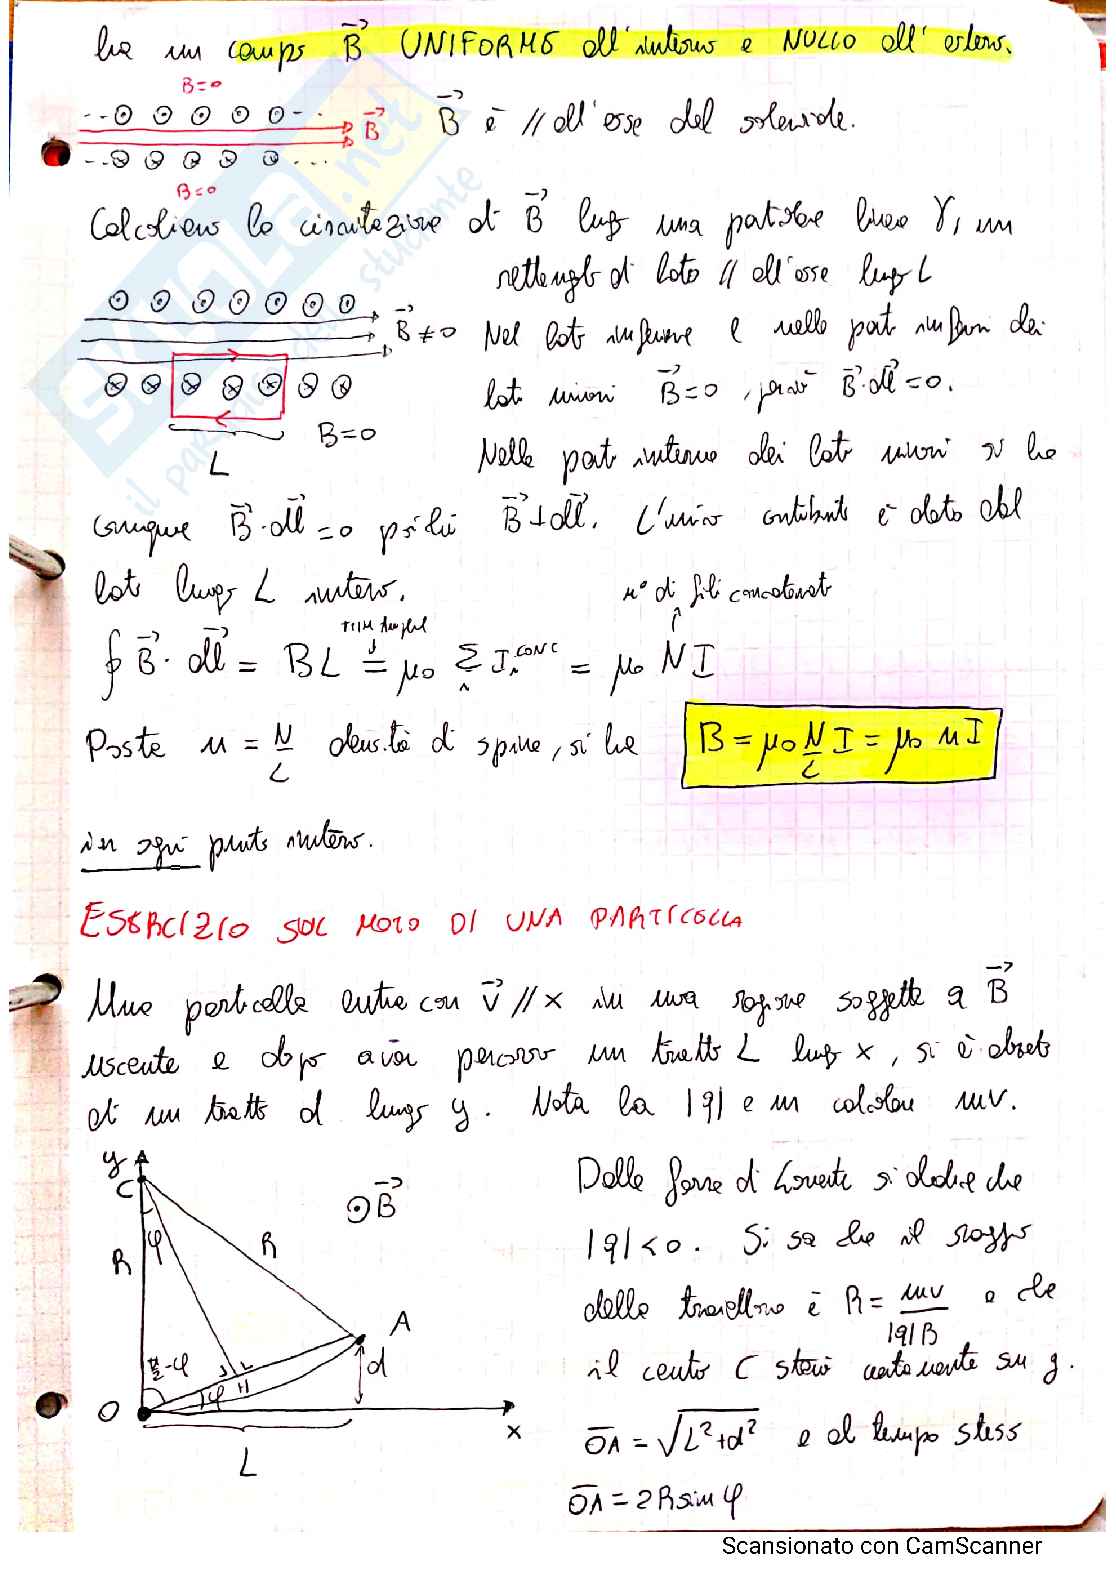 ha un campo B UNIFORME all'interno e NULLO all'esterno.
B=0
B
B è // all'asse del solenoide.
B=0
Calcoliamo la circuitazione di B lungo una particolare linea γ, un
rettangolo di lato // all'asse lungo L
B≠0
Nel lato inferiore e nelle parti inferiori dei
lati minori B=0, perciò B·dl=0.
B=0
L
Nelle parti interne dei lati minori si ha
comunque B·dl=0 poiché B⊥dl. L'unico contributo è dato dal
lato lungo L interno.
n° di fili concatenati
∮B·dl = BL = μ0 Σ I CONC = μ0 NI
Posta n = N/L densità di spire, si ha B = μ0 N/L I = μ0 nI
in ogni punto interno.
ESERCIZIO SUL MOTO DI UNA PARTICELLA
Una particella entra con V // x in una regione soggetta a B
uscente e dopo aver percorso un tratto L lungo x, si è alzata
di un tratto d lungo y. Nota la |q| e m calcolare mv.
y
C
B
φ
R
R
A
π/2-φ
H
φ
d
O
x
L
Dalla forza di Lorentz si deduce che
|q|<0. Si sa che il raggio
della traiettoria è R = mv/|q|B e che
il centro C starà certamente su y.
OA = √L²+d² e al tempo stesso
OA = 2R sin φ
SKUOLA.net
il paradiso dello studente
Scansionato con CamScanner